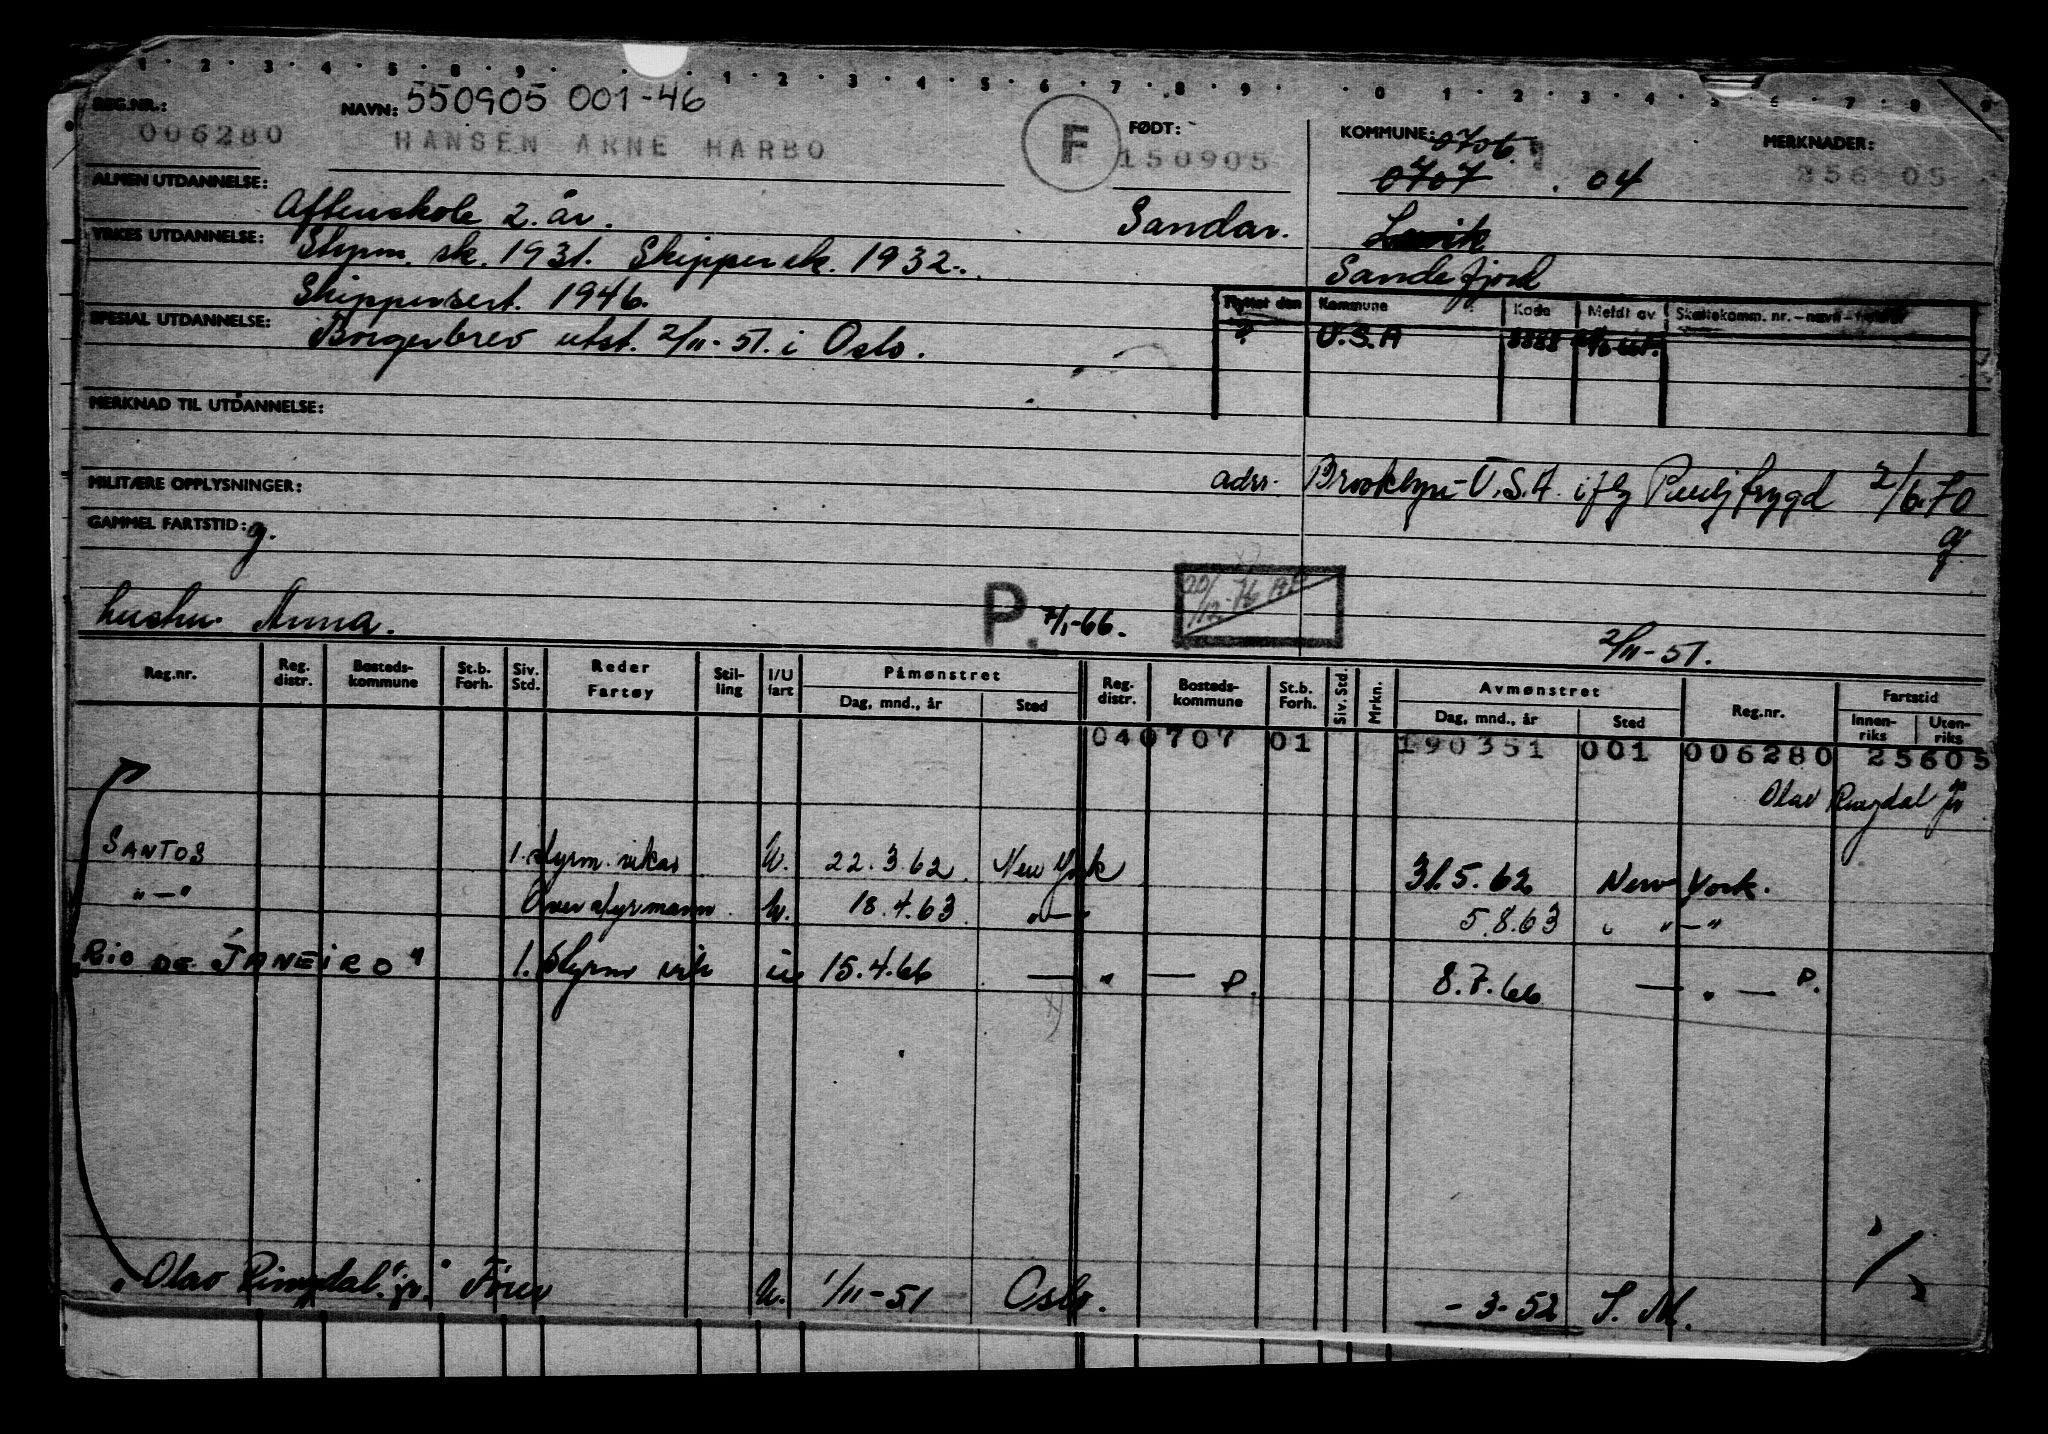 1 · 2 · 3 · 4 · 5 · 8 · 9 · · 1 · 2 · 3 · 4 · 5 · 6 · 7 · 8 · 9 · · 0 · 1 · 2 · 3 · 4 · 5 · 6 · 7 · 8 · 9
REG.NR.: NAVN: 550905 001-46 FØDT: KOMMUNE: 0706 MERKNADER:
006280 HANSEN ARNE HARBO F 150905 0707 . 04 256 05
ALMEN UTDANNELSE: Aftenskole 2. år. Sandar. Larvik
YRKES UTDANNELSE: Styrm. sk. 1931. Skippersk. 1932. Sandefjord
Skippersert. 1946.
Flyttet den Kommune Kode Meldt av Skattekomm. nr. – navn –
SPESIAL UTDANNELSE: Borgerbrev utst. 2/11-51. i Oslo. ? U.S.A 8888
MERKNAD TIL UTDANNELSE:
adr. Brooklyn-U.S.A. iflg Pensj trygd 2/6.70
MILITÆRE OPPLYSNINGER:
GAMMEL FARTSTID: g. g.
hustru Anna. P. 7/1-66. 20/12-76 2/11-51.
Reg.nr. Reg. distr. Bosteds-kommune St.b. Forh. Siv. Std. Reder Fartøy Stil-ling I/U fart Påmønstret Dag, mnd., år Sted Reg. distr. Bosteds-kommune St.b. Forh. Siv. Std. Mrkn. Avmønstret Dag, mnd., år Sted Reg.nr. Fartstid Innen-riks Uten-riks
040707 01 190351 001 006280 25605
Olav Ringdal jr
SANTOS 1. styrm. vikar U. 22.3.62 New York 31.5.62 New York.
" — " Overstyrmann U. 18.4.63 " — " 5.8.63 " — "
RIO DE JANEIRO" 1. Styrm vik u 15.4.66 — " — P. 8.7.66 — " — P.
"Olav Ringdal jr." Fører U. 1/11-51 Oslo. - 3-52 S. M.